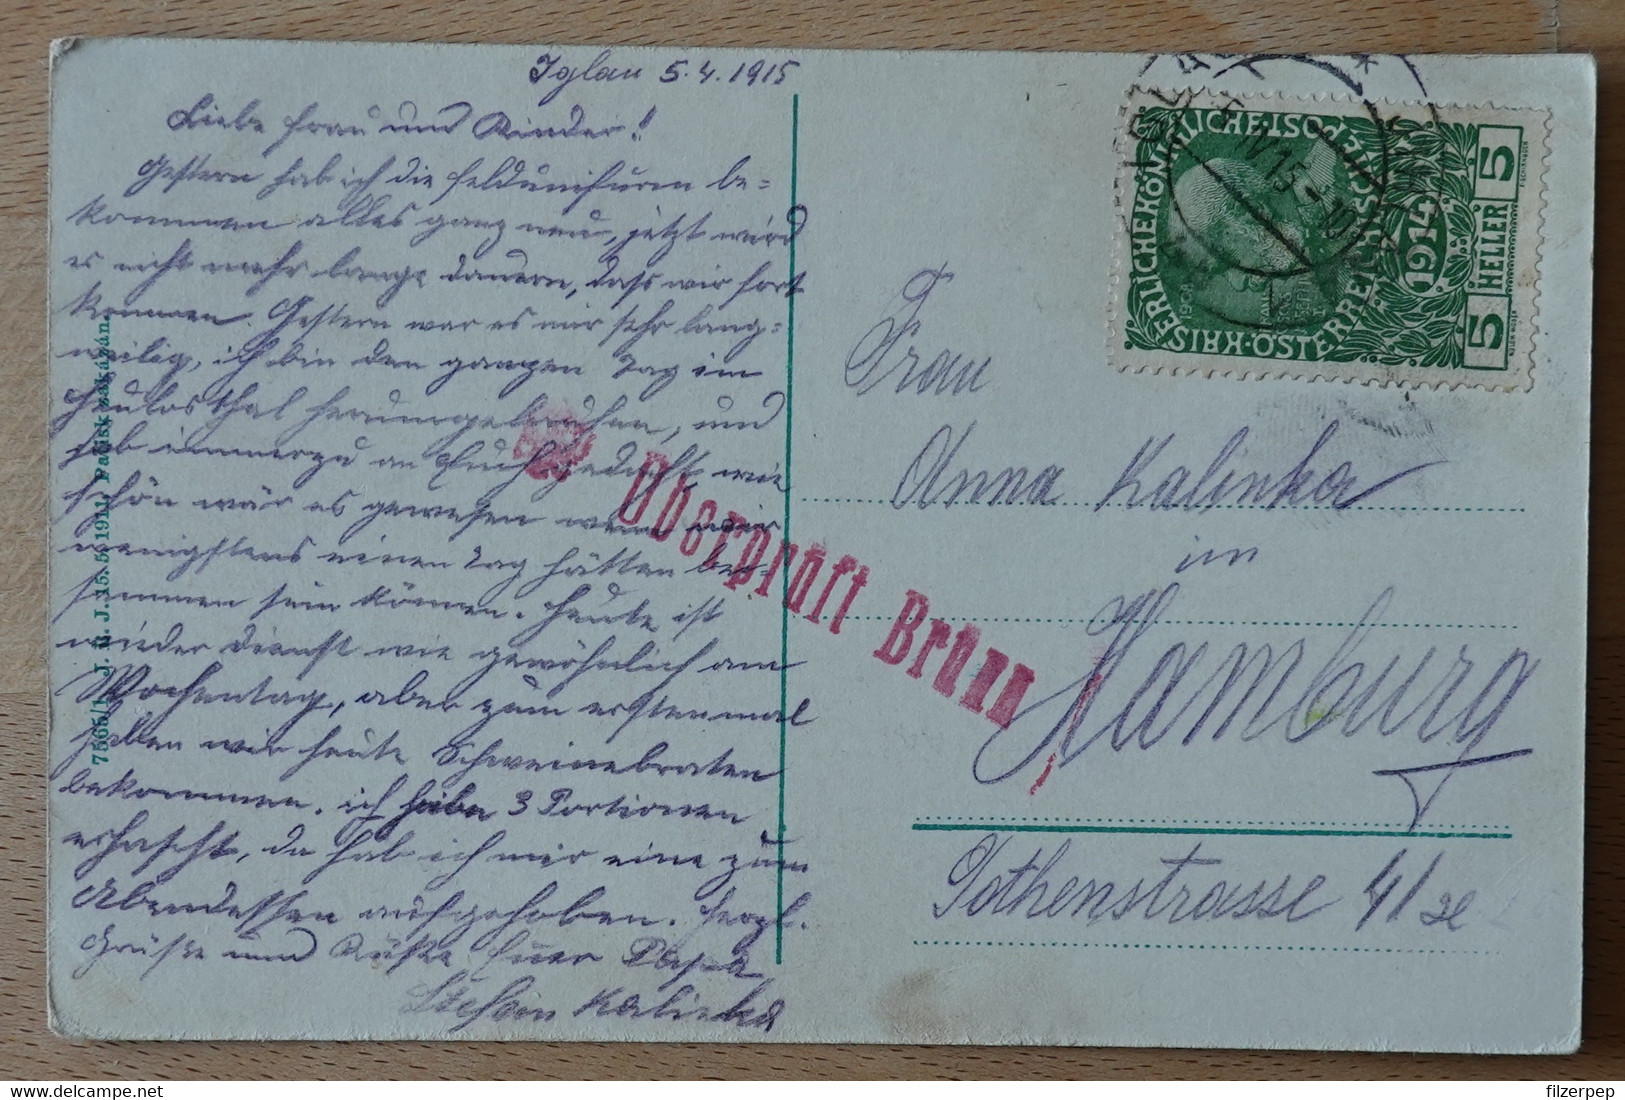 Iglau 5.4.1915
Liebe Frau und Kinder!
Gestern hab ich die Felduniform be=
kommen alles ganz neu, jetzt wird
es nicht mehr lange dauern, dass wir fort
kommen. Gestern war es mir sehr lang=
weilig, ich bin den ganzen Tag im
Heulosthal herumgelaufen, und
hab immerzu an Euch gedacht, wie
schön wär es gewesen wenn wir
wenigstens einen Tag hätten bei-
sammen sein können. Heute ist
wieder Dienst wie gewöhnlich am
Wochentag, aber zum erstenmal
haben wir heute Schweinebraten
bekommen. ich habe 3 Portionen
erhascht, da hab ich mir eine zum
Abendessen aufgehoben. Herzl.
Grüße und Küße Euer Papa
Stefan Kalinka
Frau
Anna Kalinka
in
Hamburg
Gothenstrasse 4/
Überprüft Brünn
KAISERLICHE KÖNIGLICHE ÖSTERREICHISCHE POST
1908 1914
5 HELLER 5
5 IV 15 - 10
7565/1 J. 15. 5. 1911.
filzerpep